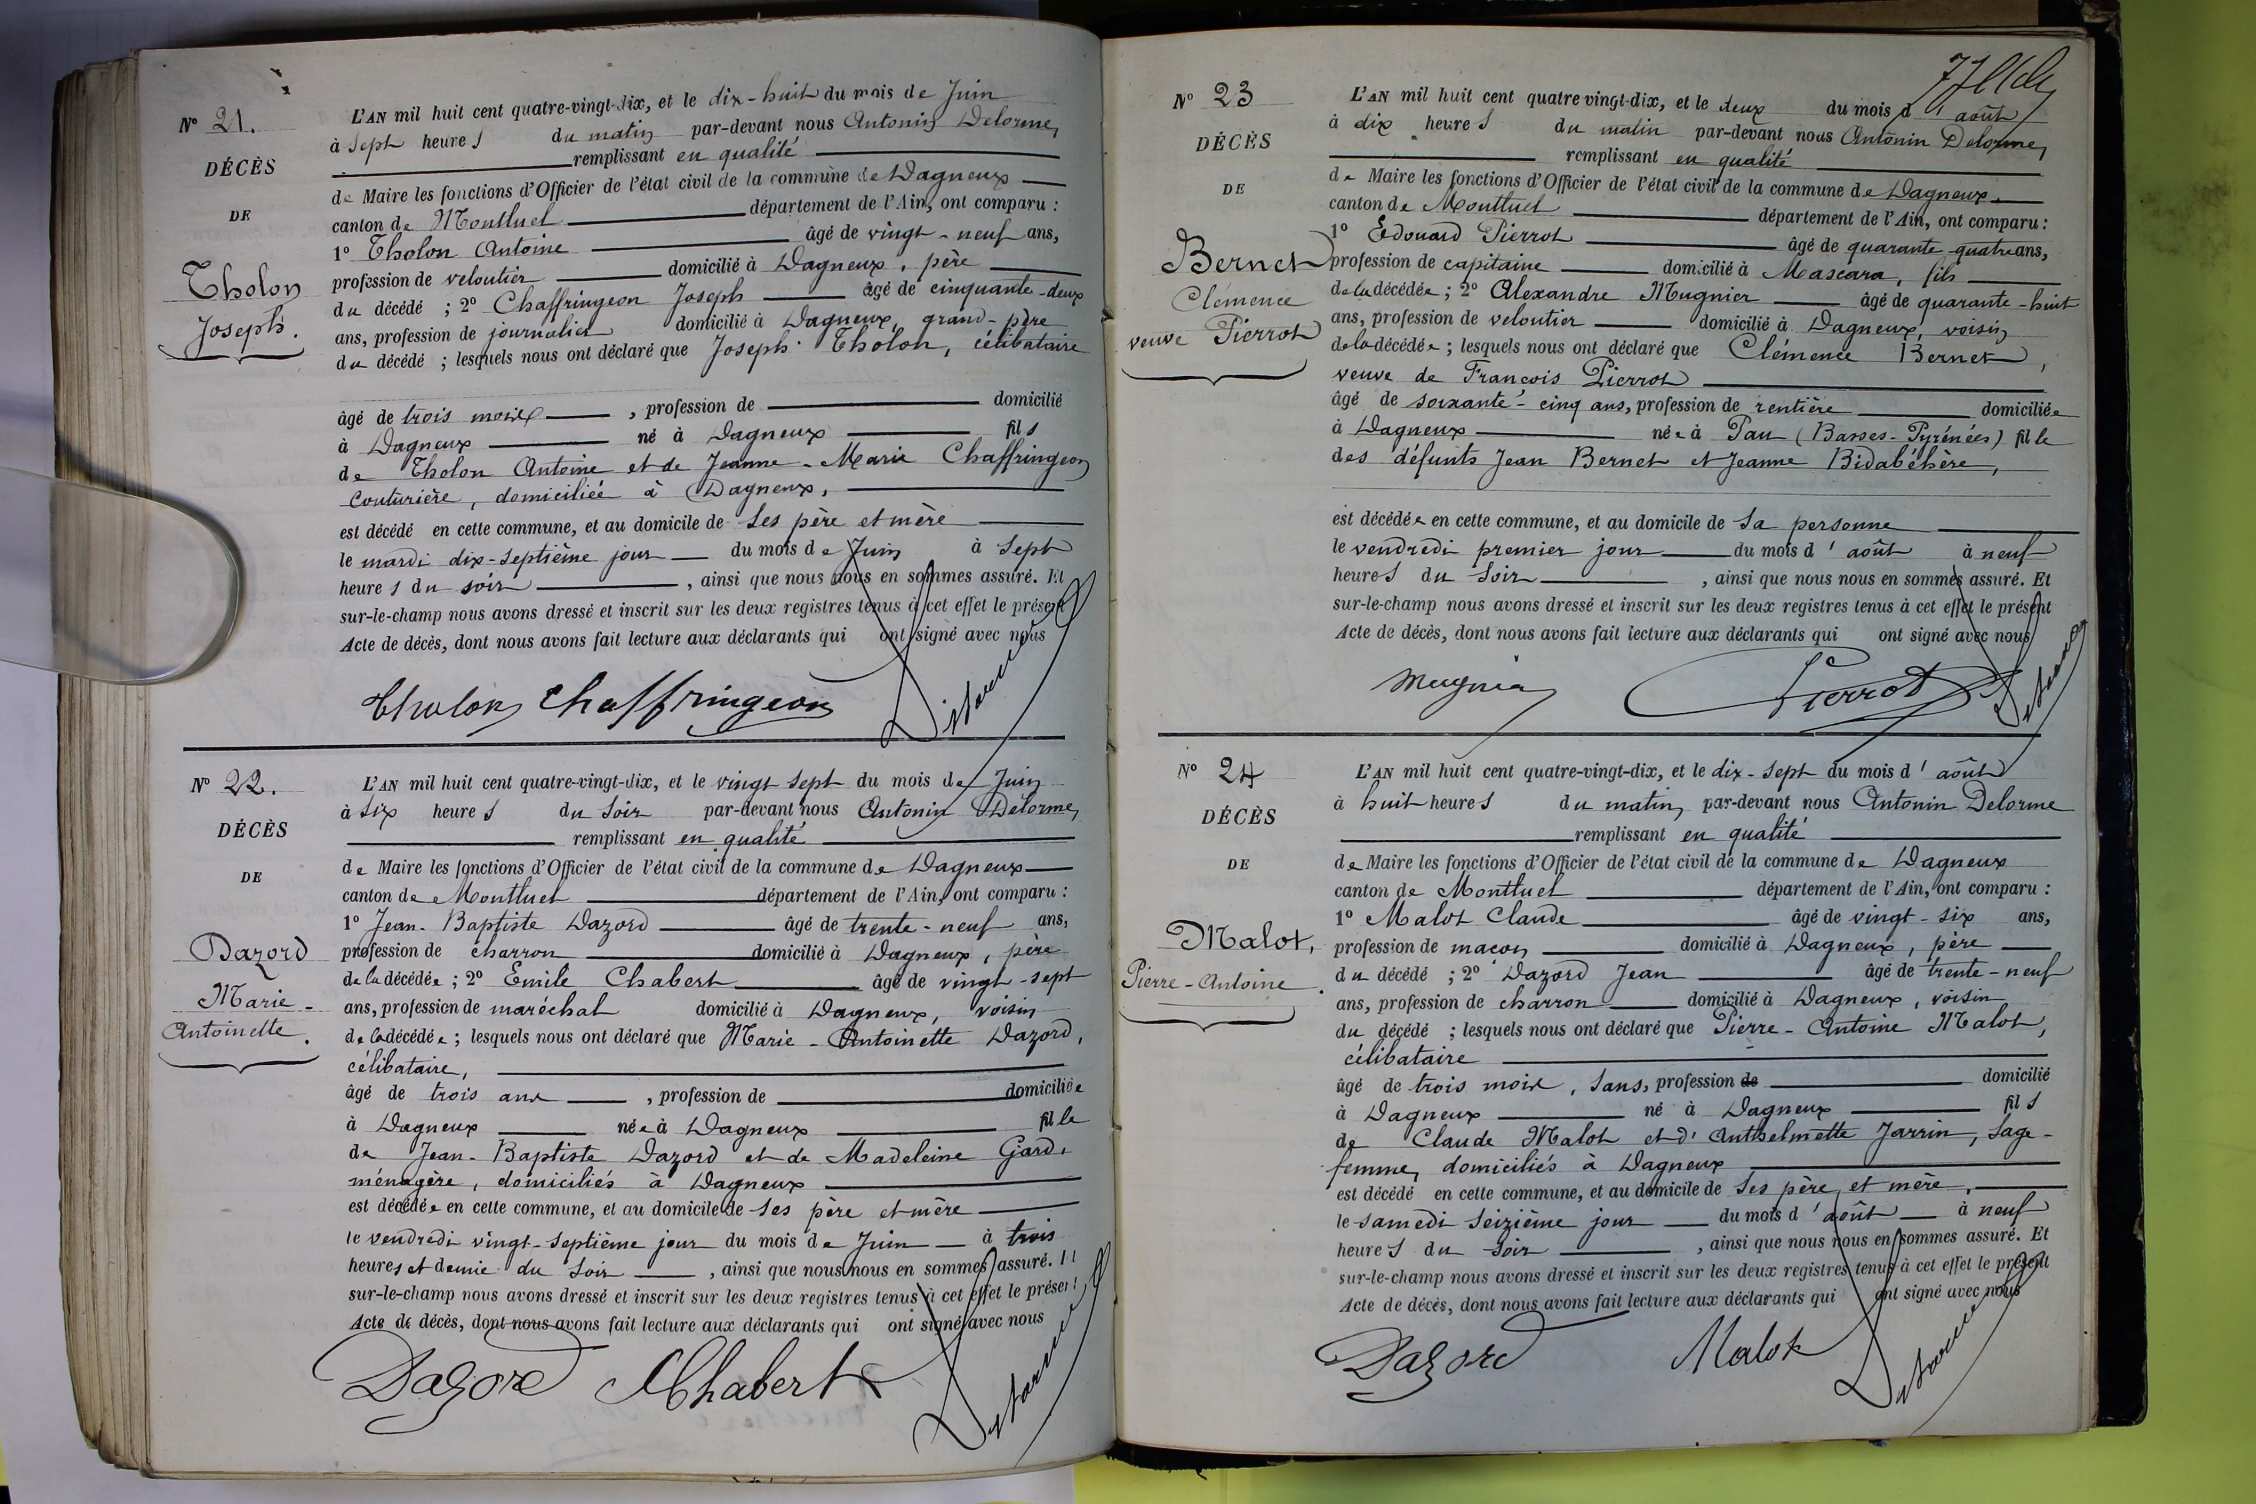 N° 21.
DÉCÈS
DE
Tholon
Joseph.
L'AN mil huit cent quatre-vingt-dix, et le dix-huit du mois de Juin
à sept heures du matin par-devant nous Antonin Delorme,
remplissant en qualité
de Maire les fonctions d'Officier de l'état civil de la commune de Dagneux
canton de Montluel département de l'Ain, ont comparu :
1° Tholon Antoine âgé de vingt-neuf ans,
profession de veloutier domicilié à Dagneux, père
du décédé ; 2° Chaffringeon Joseph âgé de cinquante-deux
ans, profession de journalier domicilié à Dagneux, grand-père
du décédé ; lesquels nous ont déclaré que Joseph Tholon, célibataire
âgé de trois mois, profession de domicilié
à Dagneux né à Dagneux fils
de Tholon Antoine et de Jeanne-Marie Chaffringeon
couturière, domiciliée à Dagneux,
est décédé en cette commune, et au domicile de ses père et mère
le mardi dix-septième jour du mois de Juin à sept
heures du soir, ainsi que nous nous en sommes assuré. Et
sur-le-champ nous avons dressé et inscrit sur les deux registres tenus à cet effet le présent
Acte de décès, dont nous avons fait lecture aux déclarants qui ont signé avec nous
Tholon Chaffringeon Delorme
N° 22.
DÉCÈS
DE
Dazord
Marie-
Antoinette.
L'AN mil huit cent quatre-vingt-dix, et le vingt sept du mois de Juin
à six heures du soir par-devant nous Antonin Delorme,
remplissant en qualité
de Maire les fonctions d'Officier de l'état civil de la commune de Dagneux
canton de Montluel département de l'Ain, ont comparu :
1° Jean-Baptiste Dazord âgé de trente-neuf ans,
profession de charron domicilié à Dagneux, père
de la décédée ; 2° Emile Chabert âgé de vingt-sept
ans, profession de maréchal domicilié à Dagneux, voisin
de la décédée ; lesquels nous ont déclaré que Marie-Antoinette Dazord,
célibataire,
âgé de trois ans, profession de domiciliée
à Dagneux née à Dagneux fille
de Jean-Baptiste Dazord et de Madeleine Gard,
ménagère, domiciliés à Dagneux
est décédée en cette commune, et au domicile de ses père et mère
le vendredi vingt-septième jour du mois de Juin à trois
heures et demie du soir, ainsi que nous nous en sommes assuré. Et
sur-le-champ nous avons dressé et inscrit sur les deux registres tenus à cet effet le présent
Acte de décès, dont nous avons fait lecture aux déclarants qui ont signé avec nous
Dazord Chabert Delorme
N° 23
DÉCÈS
DE
Bernet
Clémence
veuve Pierrot
L'AN mil huit cent quatre-vingt-dix, et le deux du mois d'août
à dix heures du matin par-devant nous Antonin Delorme,
remplissant en qualité
de Maire les fonctions d'Officier de l'état civil de la commune de Dagneux
canton de Montluel département de l'Ain, ont comparu :
1° Edouard Pierrot âgé de quarante-quatre ans,
profession de capitaine domicilié à Mascara, fils
de la décédée ; 2° Alexandre Mugnier âgé de quarante-huit
ans, profession de veloutier domicilié à Dagneux, voisin
de la décédée ; lesquels nous ont déclaré que Clémence Bernet,
veuve de François Pierrot
âgé de soixante-cinq ans, profession de rentière domiciliée
à Dagneux née à Pau (Basses-Pyrénées) fille
des défunts Jean Bernet et Jeanne Bidabéhère,
est décédée en cette commune, et au domicile de sa personne
le vendredi premier jour du mois d'août à neuf
heures du soir, ainsi que nous nous en sommes assuré. Et
sur-le-champ nous avons dressé et inscrit sur les deux registres tenus à cet effet le présent
Acte de décès, dont nous avons fait lecture aux déclarants qui ont signé avec nous
Mugnier Pierrot Delorme
N° 24
DÉCÈS
DE
Malot,
Pierre-Antoine.
L'AN mil huit cent quatre-vingt-dix, et le dix-sept du mois d'août
à huit heures du matin, par-devant nous Antonin Delorme
remplissant en qualité
de Maire les fonctions d'Officier de l'état civil de la commune de Dagneux
canton de Montluel département de l'Ain, ont comparu :
1° Malot Claude âgé de vingt-six ans,
profession de maçon domicilié à Dagneux, père
du décédé ; 2° Dazord Jean âgé de trente-neuf
ans, profession de charron domicilié à Dagneux, voisin
du décédé ; lesquels nous ont déclaré que Pierre-Antoine Malot,
célibataire
âgé de trois mois, sans, profession de domicilié
à Dagneux né à Dagneux fils
de Claude Malot et d'Anthelmette Jarrin, sage-
femme, domiciliés à Dagneux
est décédé en cette commune, et au domicile de ses père et mère,
le samedi seizième jour du mois d'août à neuf
heures du soir, ainsi que nous nous en sommes assuré. Et
sur-le-champ nous avons dressé et inscrit sur les deux registres tenus à cet effet le présent
Acte de décès, dont nous avons fait lecture aux déclarants qui ont signé avec nous
Dazord Malot Delorme